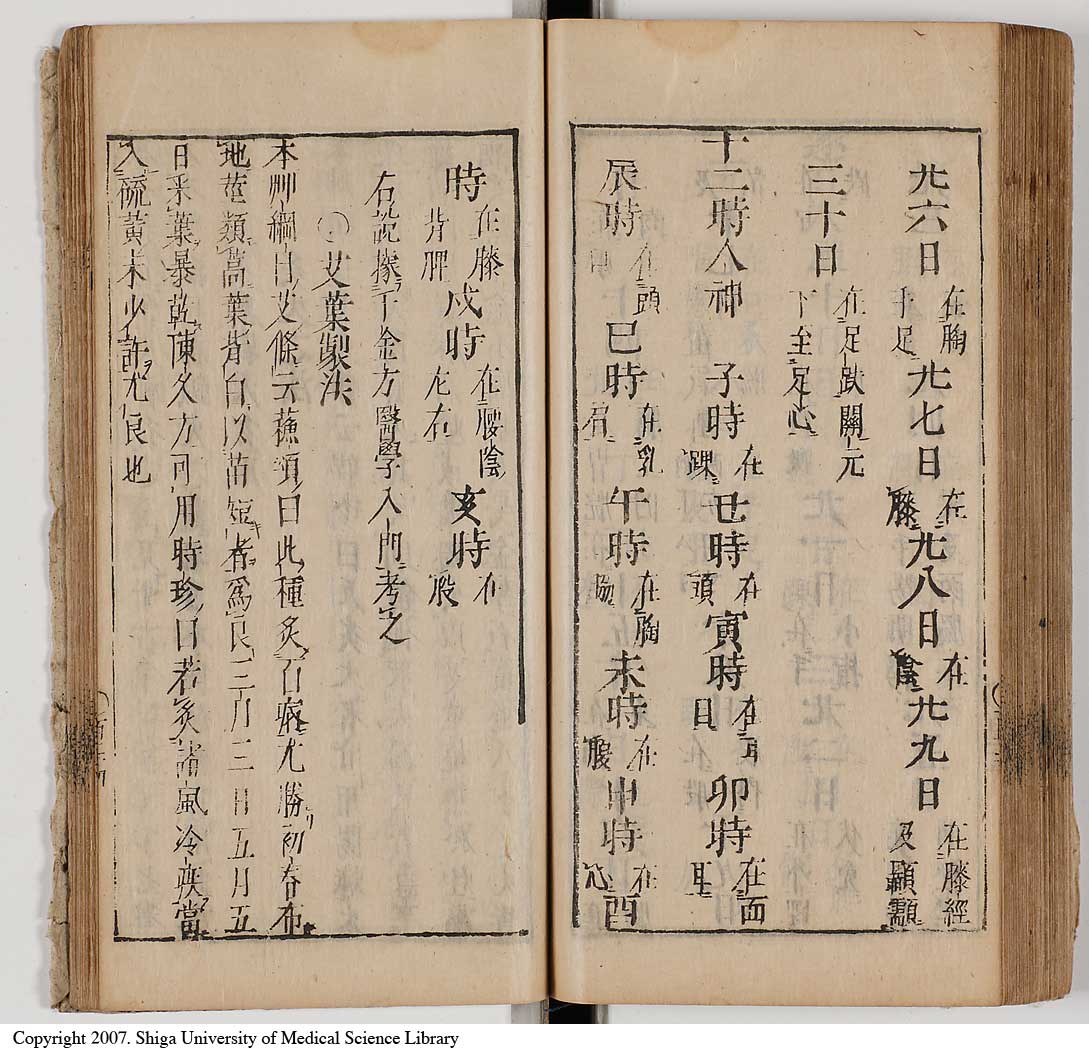 廿六日 在胸 手足 廿七日 在 膝 廿八日 在 陰 廿九日 在膝經 及顳顬
三十日 在足趺關元 下至足心
十二時人神 子時 在 踝 丑時 在 頭 寅時 在耳 目 卯時 在面 耳
辰時 在頭 巳時 在乳 肩 午時 在胸 脇 未時 在 腹 申時 在 心 酉
時 在膝 背脾 戌時 在腰陰 左右 亥時 在 股
右說據千金方醫學入門考之
○艾葉製法
本艸綱目艾條云蘓頌曰此種灸百病尤勝初春布
地莖類蒿葉背白以苗短者爲良三月三日五月五
日采葉暴乾陳久方可用時珍曰若灸諸風冷疾當
入硫黃末少許尤良也
Copyright 2007. Shiga University of Medical Science Library